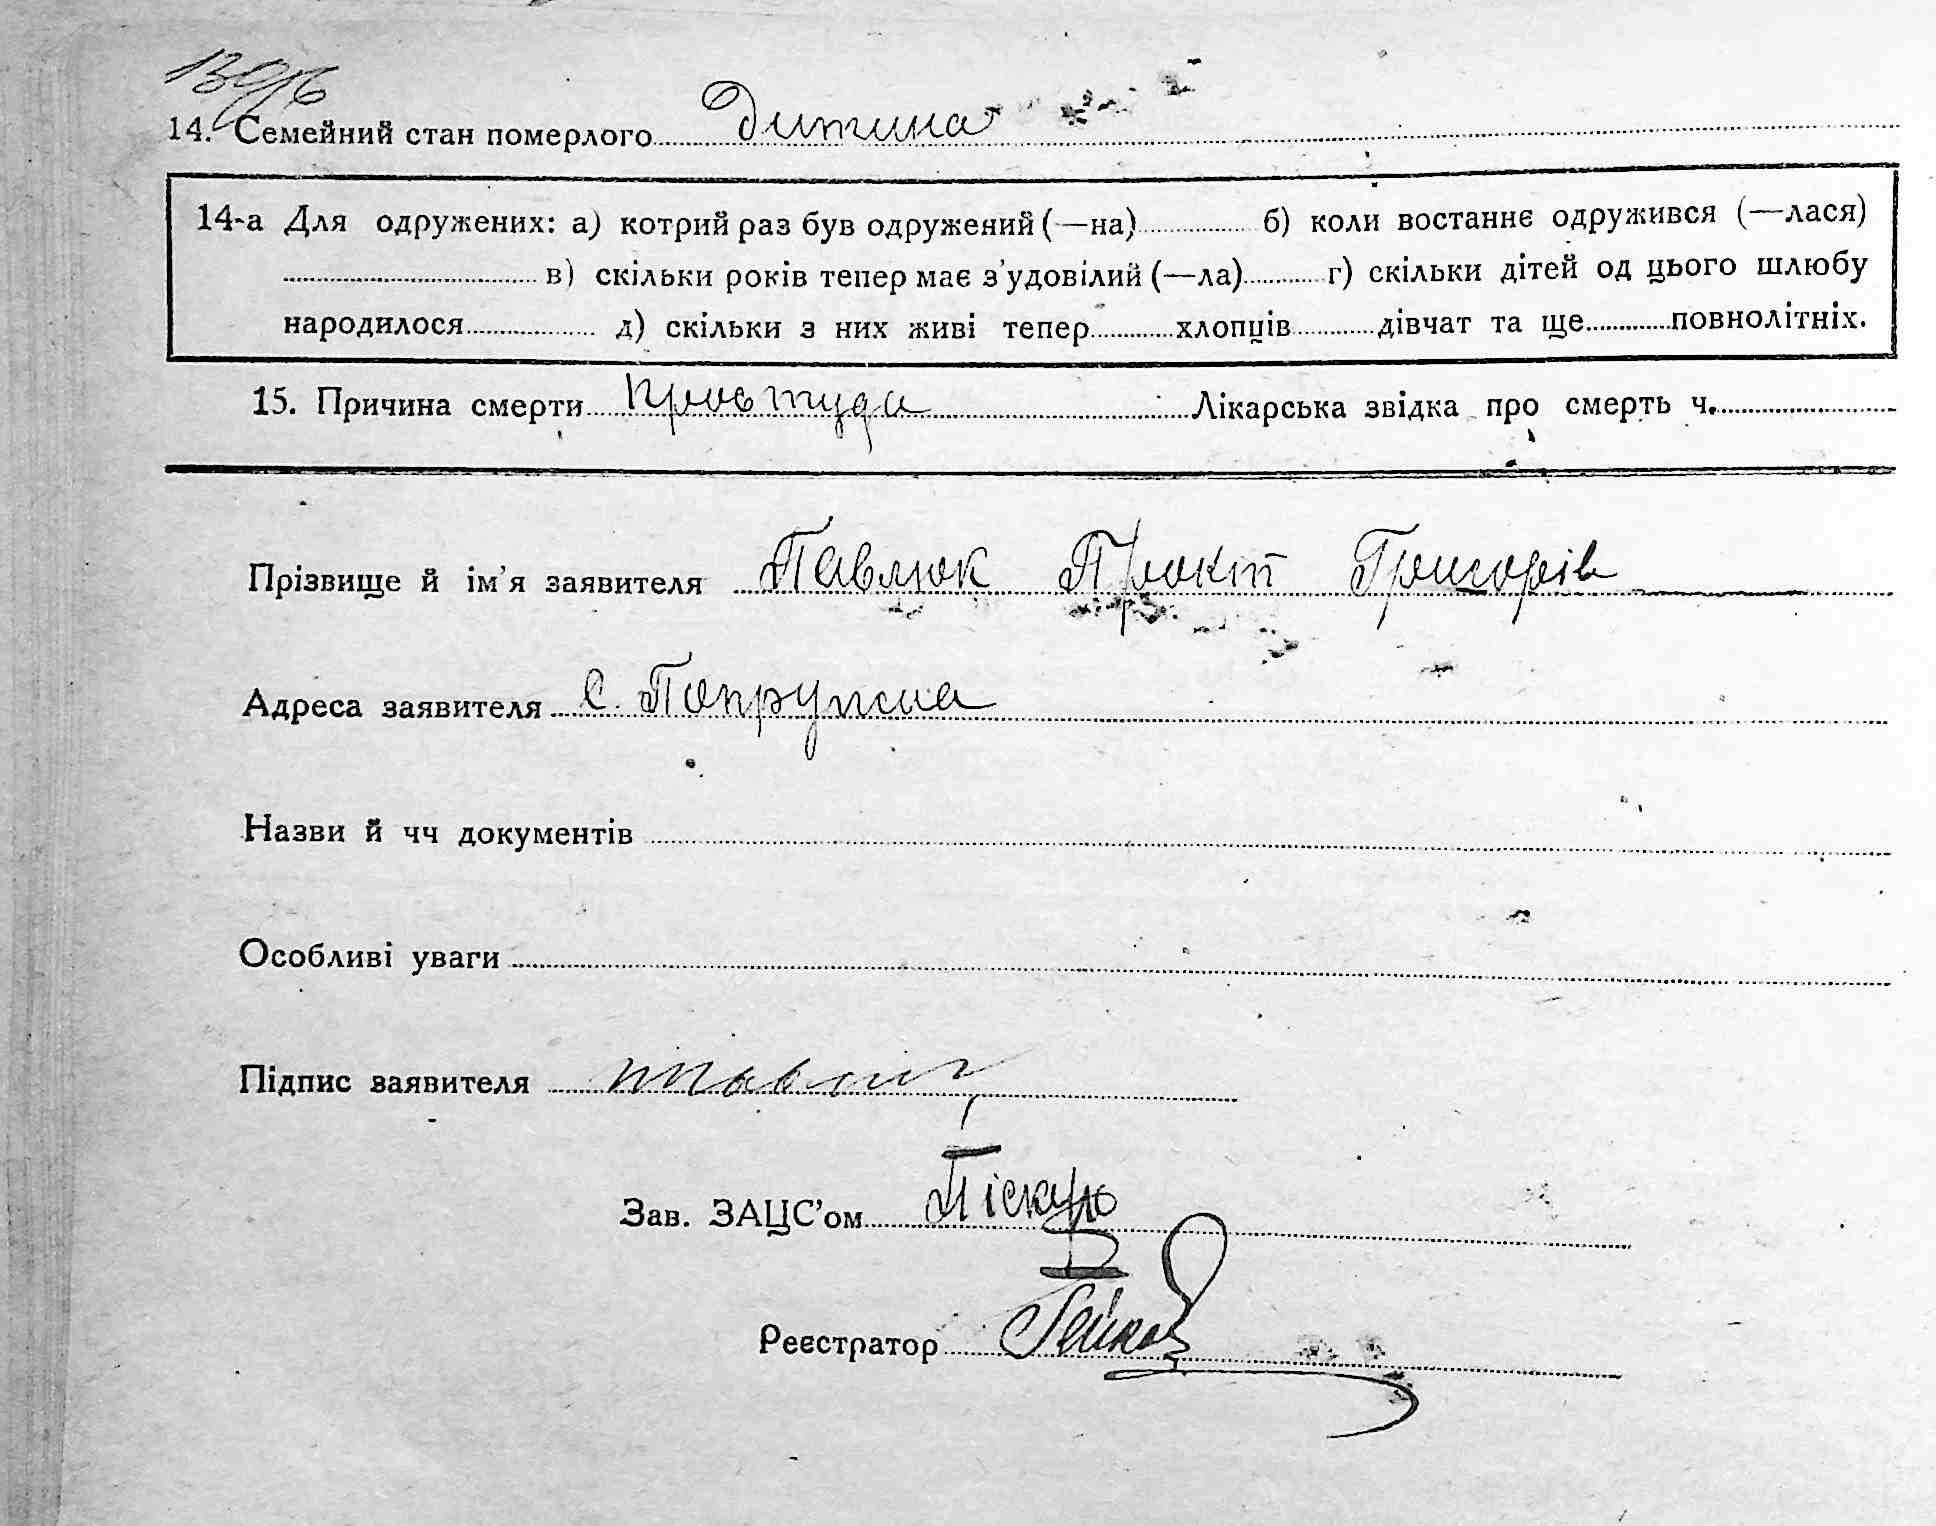 14. Семейний стан померлого Дитина
14-а Для одружених: а) котрий раз був одружений (—на) б) коли востаннє одружився (—лася)
в) скільки років тепер має з'удовілий (—ла) г) скільки дітей од цього шлюбу
народилося д) скільки з них живі тепер хлопців дівчат та ще повнолітніх.
15. Причина смерти простуда Лікарська звідка про смерть ч.
Прізвище й ім'я заявителя Павлюк Прокіп Григорів
Адреса заявителя с. Попружна
Назви й чч документів
Особливі уваги
Підпис заявителя
Зав. ЗАЦС'ом
Реєстратор